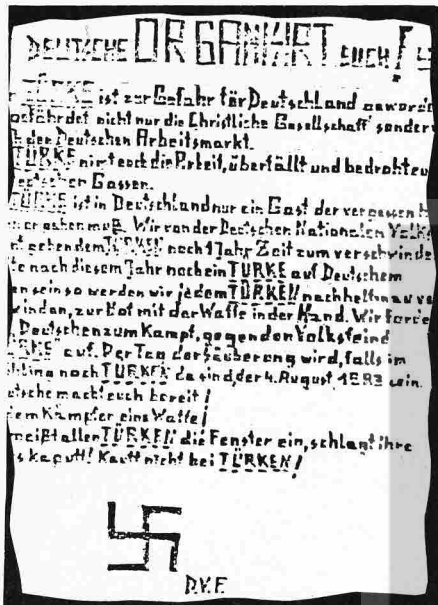 DEUTSCHE ORGANISIERT EUCH!
ist zur Gefahr für Deutschland geworde
gefährdet nicht nur die Christliche Gesellschaft sonder
den Deutschen Arbeitsmarkt.
TÜRKE nimt euch die Arbeit, überfällt und bedroht eu
Deutscher Gassen.
TÜRKE ist in Deutschland nur ein Gast der vergessen
gehen muß. Wir von der Deutschen Nationalen Volks
dem TÜRKEN noch 1 Jahr Zeit zum verschwinde
nach diesem Jahr noch ein TÜRKE auf Deutschem
sein so werden wir jedem TÜRKEN nachhelfen zu ve
winden, zur Not mit der Waffe in der Hand. Wir forde
Deutschen zum Kampf, gegen den Volksfeind
auf. Der Tag der Säuberung wird, falls im
noch TÜRKEN da sind, der 4. August 1983 sein.
utsche macht euch bereit!
dem Kämpfer eine Waffe!
meißt allen TÜRKEN die Fenster ein, schlagt ihre
kaputt! Kauft nicht bei TÜRKEN!
D.V.F.